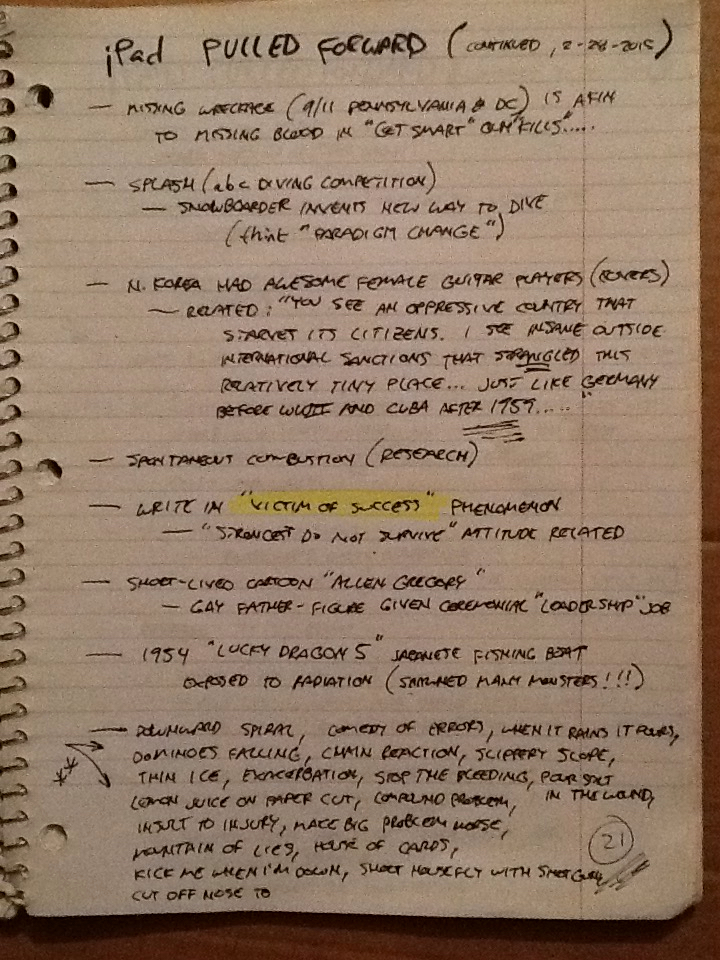 iPad PULLED FORWARD (CONTINUED, 2-28-2015)
— MISSING WRECKAGE (9/11 PENNSYLVANIA & DC) IS AKIN
TO MISSING BLOOD IN "GET SMART" GUN "KILLS".....
— SPLASH (abc DIVING COMPETITION)
— SNOWBOARDER INVENTS NEW WAY TO DIVE
(think "PARADIGM CHANGE")
— N. KOREA HAD AWESOME FEMALE GUITAR PLAYERS (COVERS)
— RELATED: "YOU SEE AN OPPRESSIVE COUNTRY THAT
STARVES ITS CITIZENS. I SEE INSANE OUTSIDE
INTERNATIONAL SANCTIONS THAT STRANGLED THIS
RELATIVELY TINY PLACE... JUST LIKE GERMANY
BEFORE WWII AND CUBA AFTER 1959....."
— SPONTANEOUS COMBUSTION (RESEARCH)
— WRITE IN "VICTIM OF SUCCESS" PHENOMENON
— "STRONGEST DO NOT SURVIVE" ATTITUDE RELATED
— SHORT-LIVED CARTOON "ALLEN GREGORY"
— GAY FATHER-FIGURE GIVEN CEREMONIAL "LEADERSHIP" JOB
— 1954 "LUCKY DRAGON 5" JAPANESE FISHING BOAT
EXPOSED TO RADIATION (SPAWNED MANY MONSTERS!!!)
— DOWNWARD SPIRAL, COMEDY OF ERRORS, WHEN IT RAINS IT POURS,
** DOMINOES FALLING, CHAIN REACTION, SLIPPERY SLOPE,
THIN ICE, EXACERBATION, STOP THE BLEEDING, POUR SALT
IN THE WOUND,
LEMON JUICE ON PAPER CUT, COMPOUND PROBLEM,
INSULT TO INJURY, MAKE BIG PROBLEM WORSE,
MOUNTAIN OF LIES, HOUSE OF CARDS,
KICK ME WHEN I'M DOWN, SHOOT HOUSEFLY WITH SHOTGUN,
CUT OFF NOSE TO
21